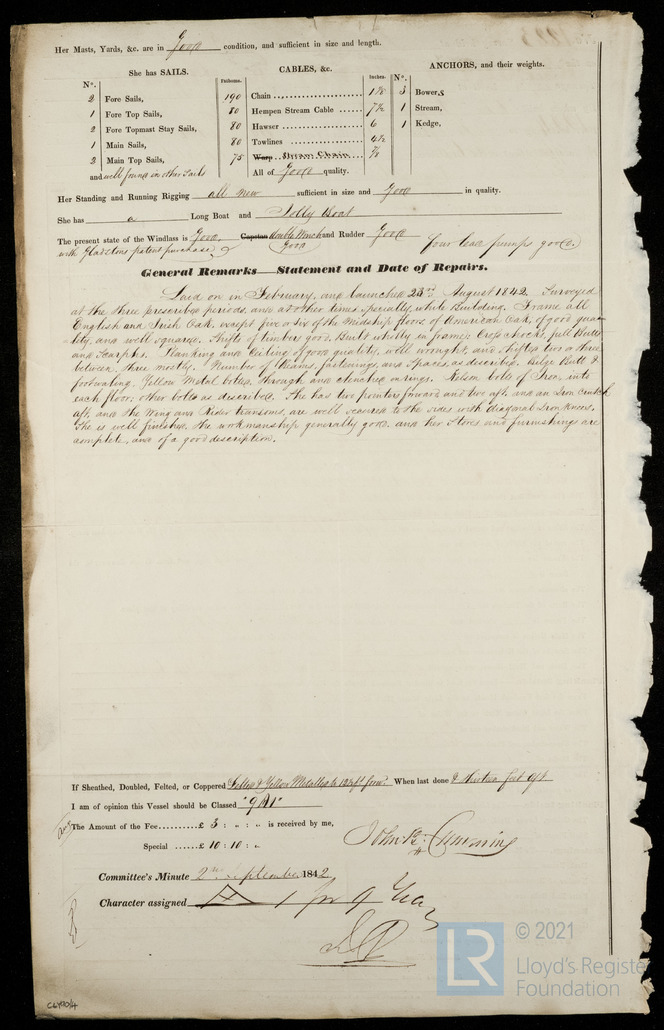 Her Masts, Yards, &c. are in Good condition, and sufficient in size and length.
She has SAILS.
CABLES, &c.
ANCHORS, and their weights.
No.
Fathoms.
Inches.
No.
2 Fore Sails,
190 Chain 1 1/8
3 Bowers
1 Fore Top Sails,
80 Hempen Stream Cable 7 1/2
1 Stream,
2 Fore Topmast Stay Sails,
80 Hawser 6
1 Kedge,
1 Main Sails,
80 Towlines 4 1/2
2 Main Top Sails,
75 Warp Stream Chain 7/8
and well found in other Sails
All of Good quality.
Her Standing and Running Rigging all new sufficient in size and Good in quality.
She has a Long Boat and Jolly Boat
The present state of the Windlass is Good, Capstan double Winch and Rudder Good four lead pumps good.
with Gladstons patent purchase Good
General Remarks—Statement and Date of Repairs.
Laid on in February, and launched 23rd August 1842. Surveyed
at the three prescribed periods, and at other times specially, while Building. Frame all
English and Irish Oak, except five or six of the Midship floors of American Oak, of good qua-
-lity, and well squared. Shifts of timbers good. Butts wholly on frames; Cross chocks, full Butts
and Scarphs. Planking and Ceiling of good quality, well wrought, and shifted two & three
between, three mostly. Number of Beams, fastenings, and Spaces, as described. Bilge, Butt &
footwaling, Yellow Metal bolted, through and clenched on rings. Kelson bolts of Iron, into
each floor; other bolts as described. She has two pointers forward and two aft, and an Iron Crutch
aft, and the Wing and Rider transoms, are well secured to the sides with diagonal Iron Knees.
She is well finished, the workmanship generally good, and her Stores and furnishings are
complete, and of a good description.
If Sheathed, Doubled, Felted, or Coppered Felted & Yellow Metalled to 12 1/2 ft forwd. When last done & thirteen feet aft
I am of opinion this Vessel should be Classed "9A1"
The Amount of the Fee £ 3 : „ : „ is received by me,
Special £ 10 : 10 : „
John B. Cumming
Committee's Minute 2nd September 1842
Character assigned A 1 for 9 Years
CL490/4
LR
© 2021
Lloyd's Register
Foundation